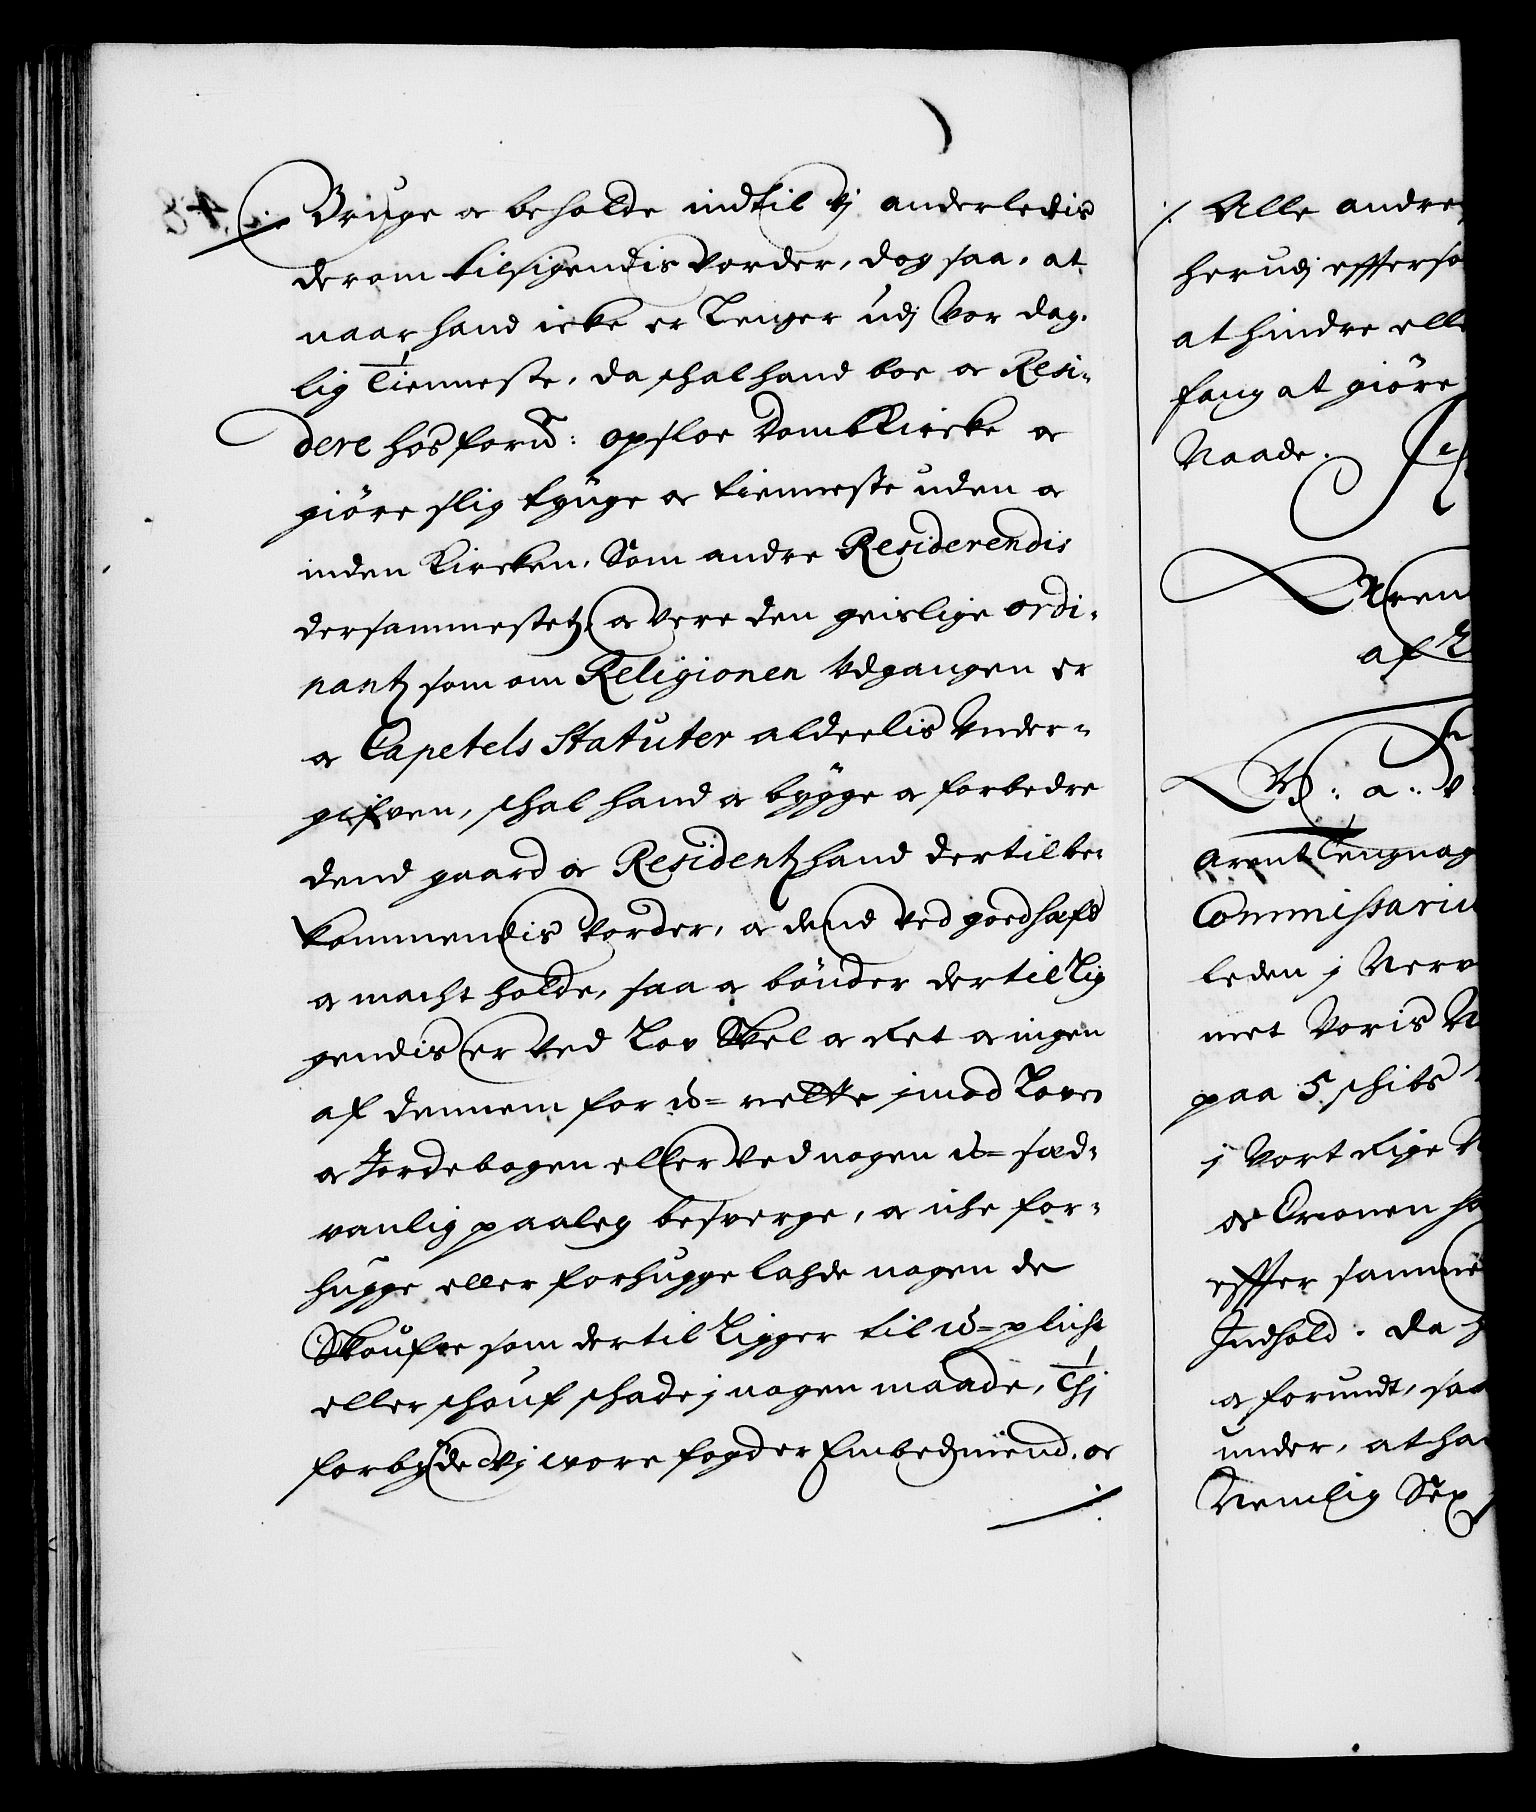 Bruge oc beholde indtil Vj anderledis
derom tilsigendis vorder, dog saa, at
naar hand icke er Lenger udj Vor dag-
lig Tienneste, da schal hand boe oc Resi-
dere hos fornd: Opsloe DombKircke oc
giöre slig tynge oc tienneste uden oc
inden Kircken, Som andre Residerendis
dersammestetz, oc vere den geislige ordi-
nantz som om Religionen Udgangen er
oc Capetels Statuter alderlis Under-
gifven, schal hand oc bygge oc forbedre
dend gaard oc Residentz hand dertil be-
kommendis vorder, oc dend ved goed hæfd
oc macht holde, saa oc bönder dertil Lig
gendis er ved Lov Skel oc Ret oc ingen
af dennem for u-rette imod Loven
oc Jordebogen eller ved nogen u-sæd-
vanlig paaleg besverge, oc iche for-
hugge eller forhugge lahde nogen de
Skoufve som dertil Ligger til u-plicht
eller schouf schade j nogen maade, Thj
forbyde Vj wore fogder Embedzmend, oc
./. Alle andre
herudj effterso
at hindre elle
fang at giöre
Naade.
af
V: a: V:
Arent Tengnag
Commissariu
leden j Nerv
met Voris
paa 5 schibs
j Vort Rige
oc Cronen
effter samme
Indhold. da
oc forundt, saa
under, at ha
Nemlig Sex